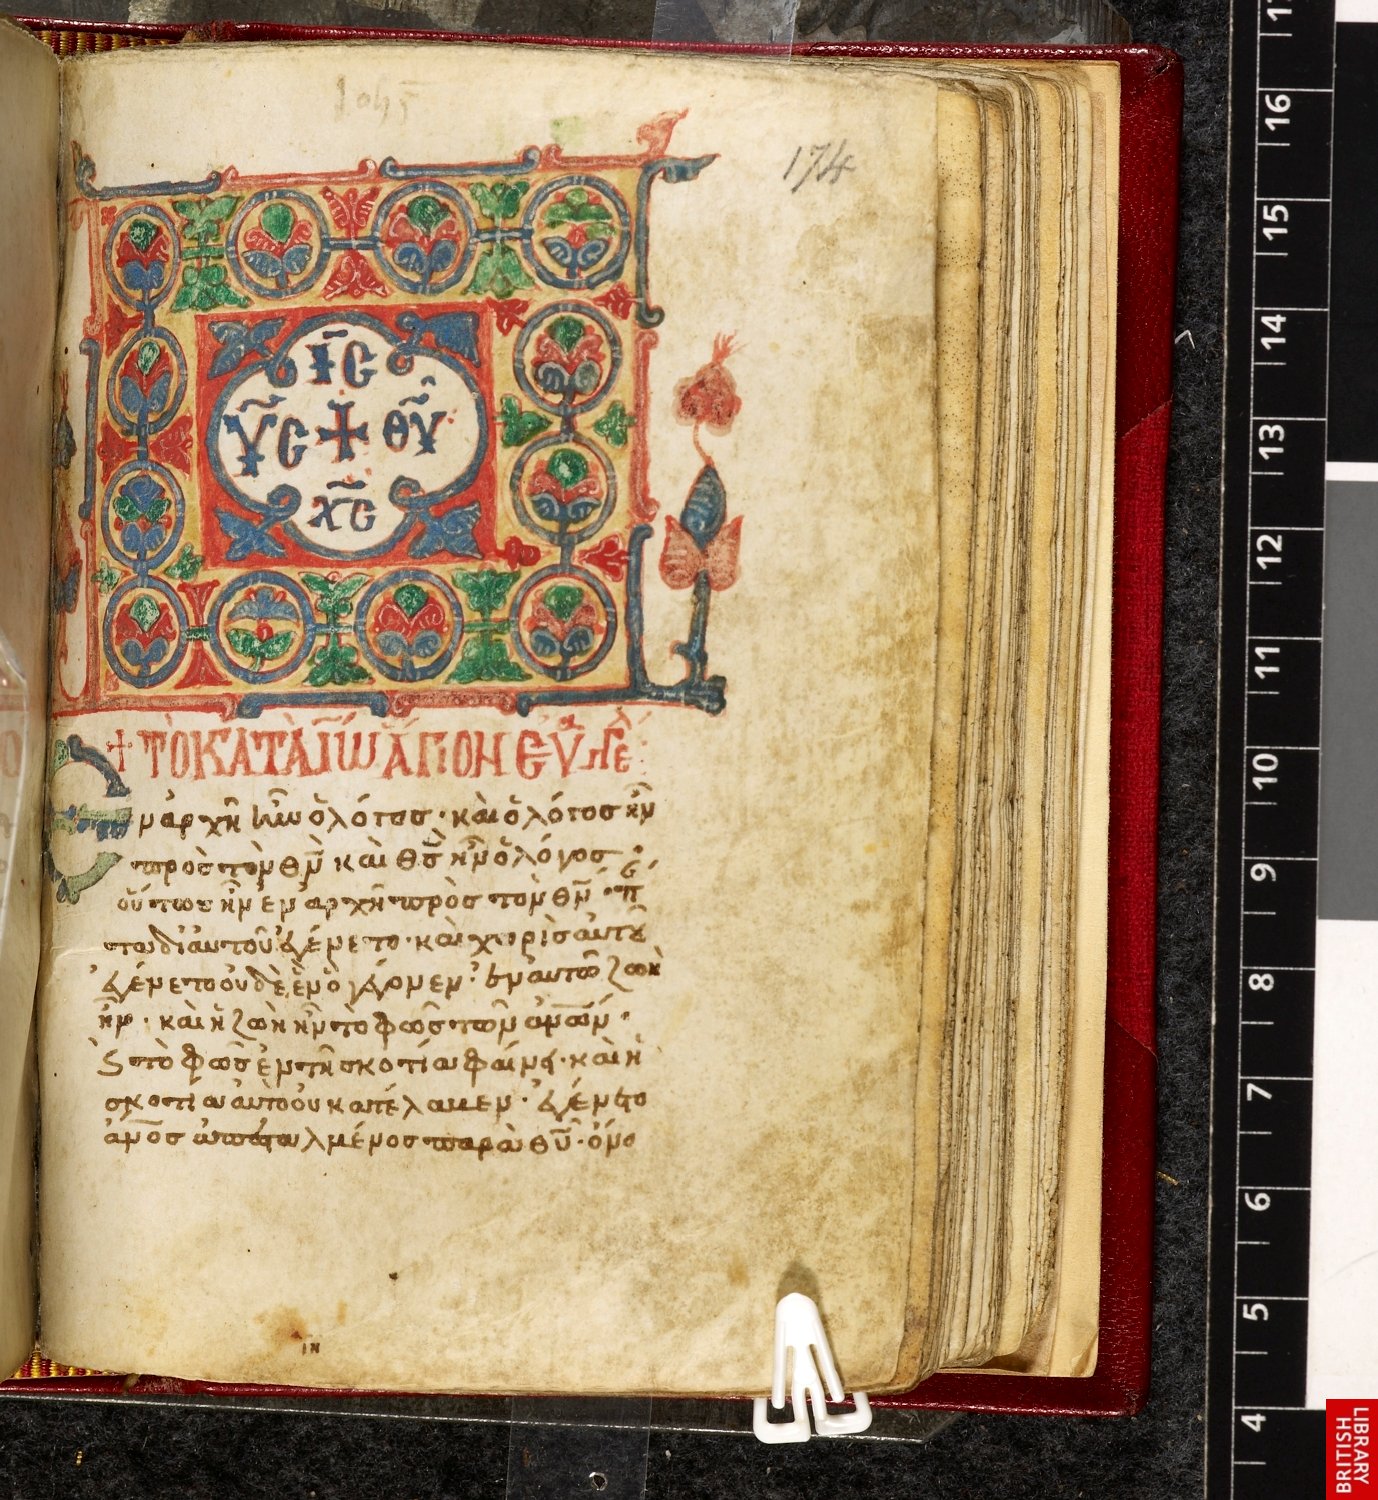 1045
174
ΙC
ΥC + ΘΥ
ΧC
+ ΤΟ ΚΑΤΑ ΙΩ ΑΓΙΟΝ ΕΥΑΓΓΕ
Εν ἀρχῆ ἦν ὁ λόγος · καὶ ὁ λόγος ἦν
πρὸς τὸν θν καὶ θς ἦν ὁ λόγος ·
οὗτος ἦν ἐν ἀρχῆ πρὸς τὸν θν · π
τα δι αυτοῦ ἐγένετο · καὶ χωρὶς αὐτου
ἐγένετο οὐδὲ ἓν ὃ γέγονεν · ἐν αυτῶ ζωὴ
ἦν · καὶ ἡ ζωὴ ἦν τὸ φῶς τῶν ανων ·
κ τὸ φῶς ἐν τῆ σκοτία φαίνει · καὶ ἡ
σκοτία αὐτὸ οὐ κατέλαβεν · ἐγένετο
ανος ἀπεσταλμένος παρὰ θυ · ὄνο
17
16
15
14
13
12
11
10
9
8
7
6
5
4
BRITISH
LIBRARY